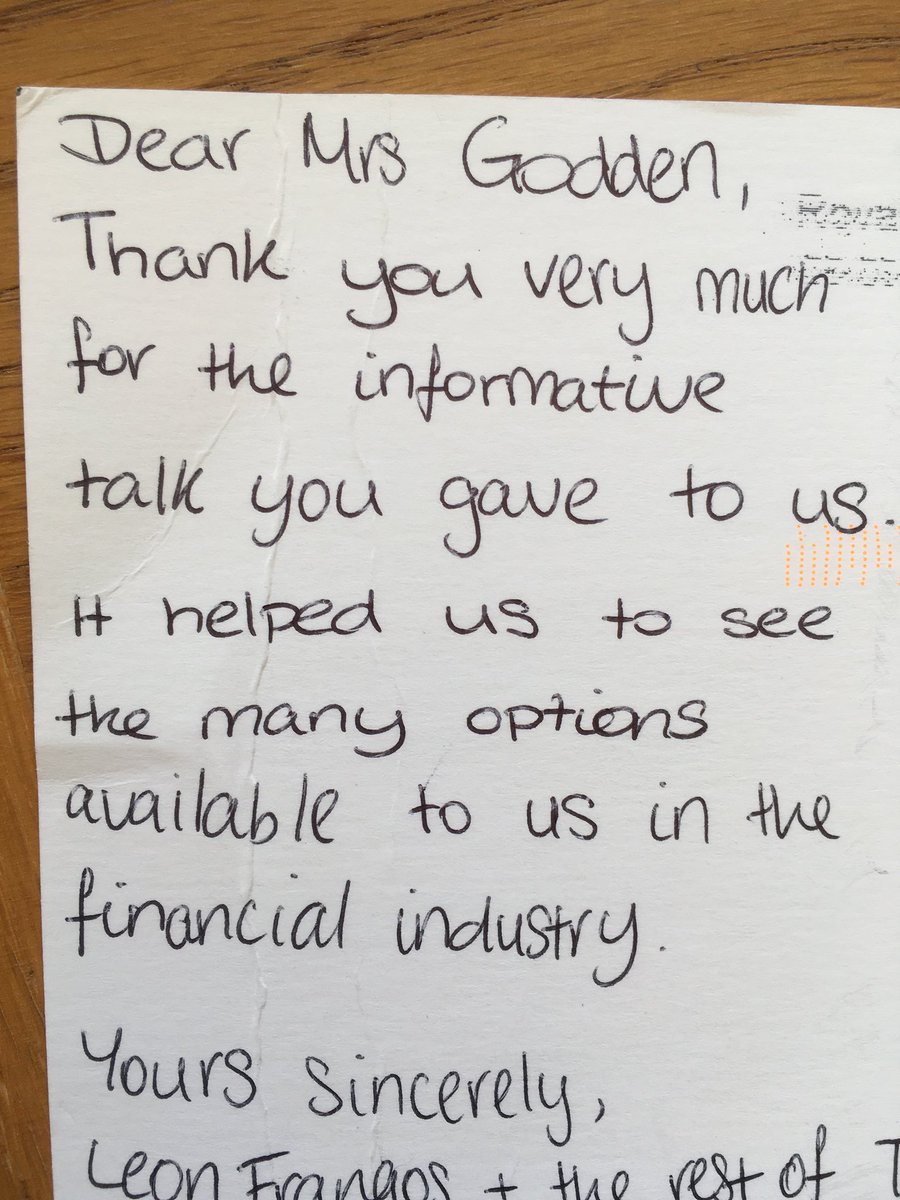 Dear Mrs Godden,
Thank you very much
for the informative
talk you gave to us.
It helped us to see
the many options
available to us in the
financial industry.
Yours sincerely,
Leon Frangos + the rest of